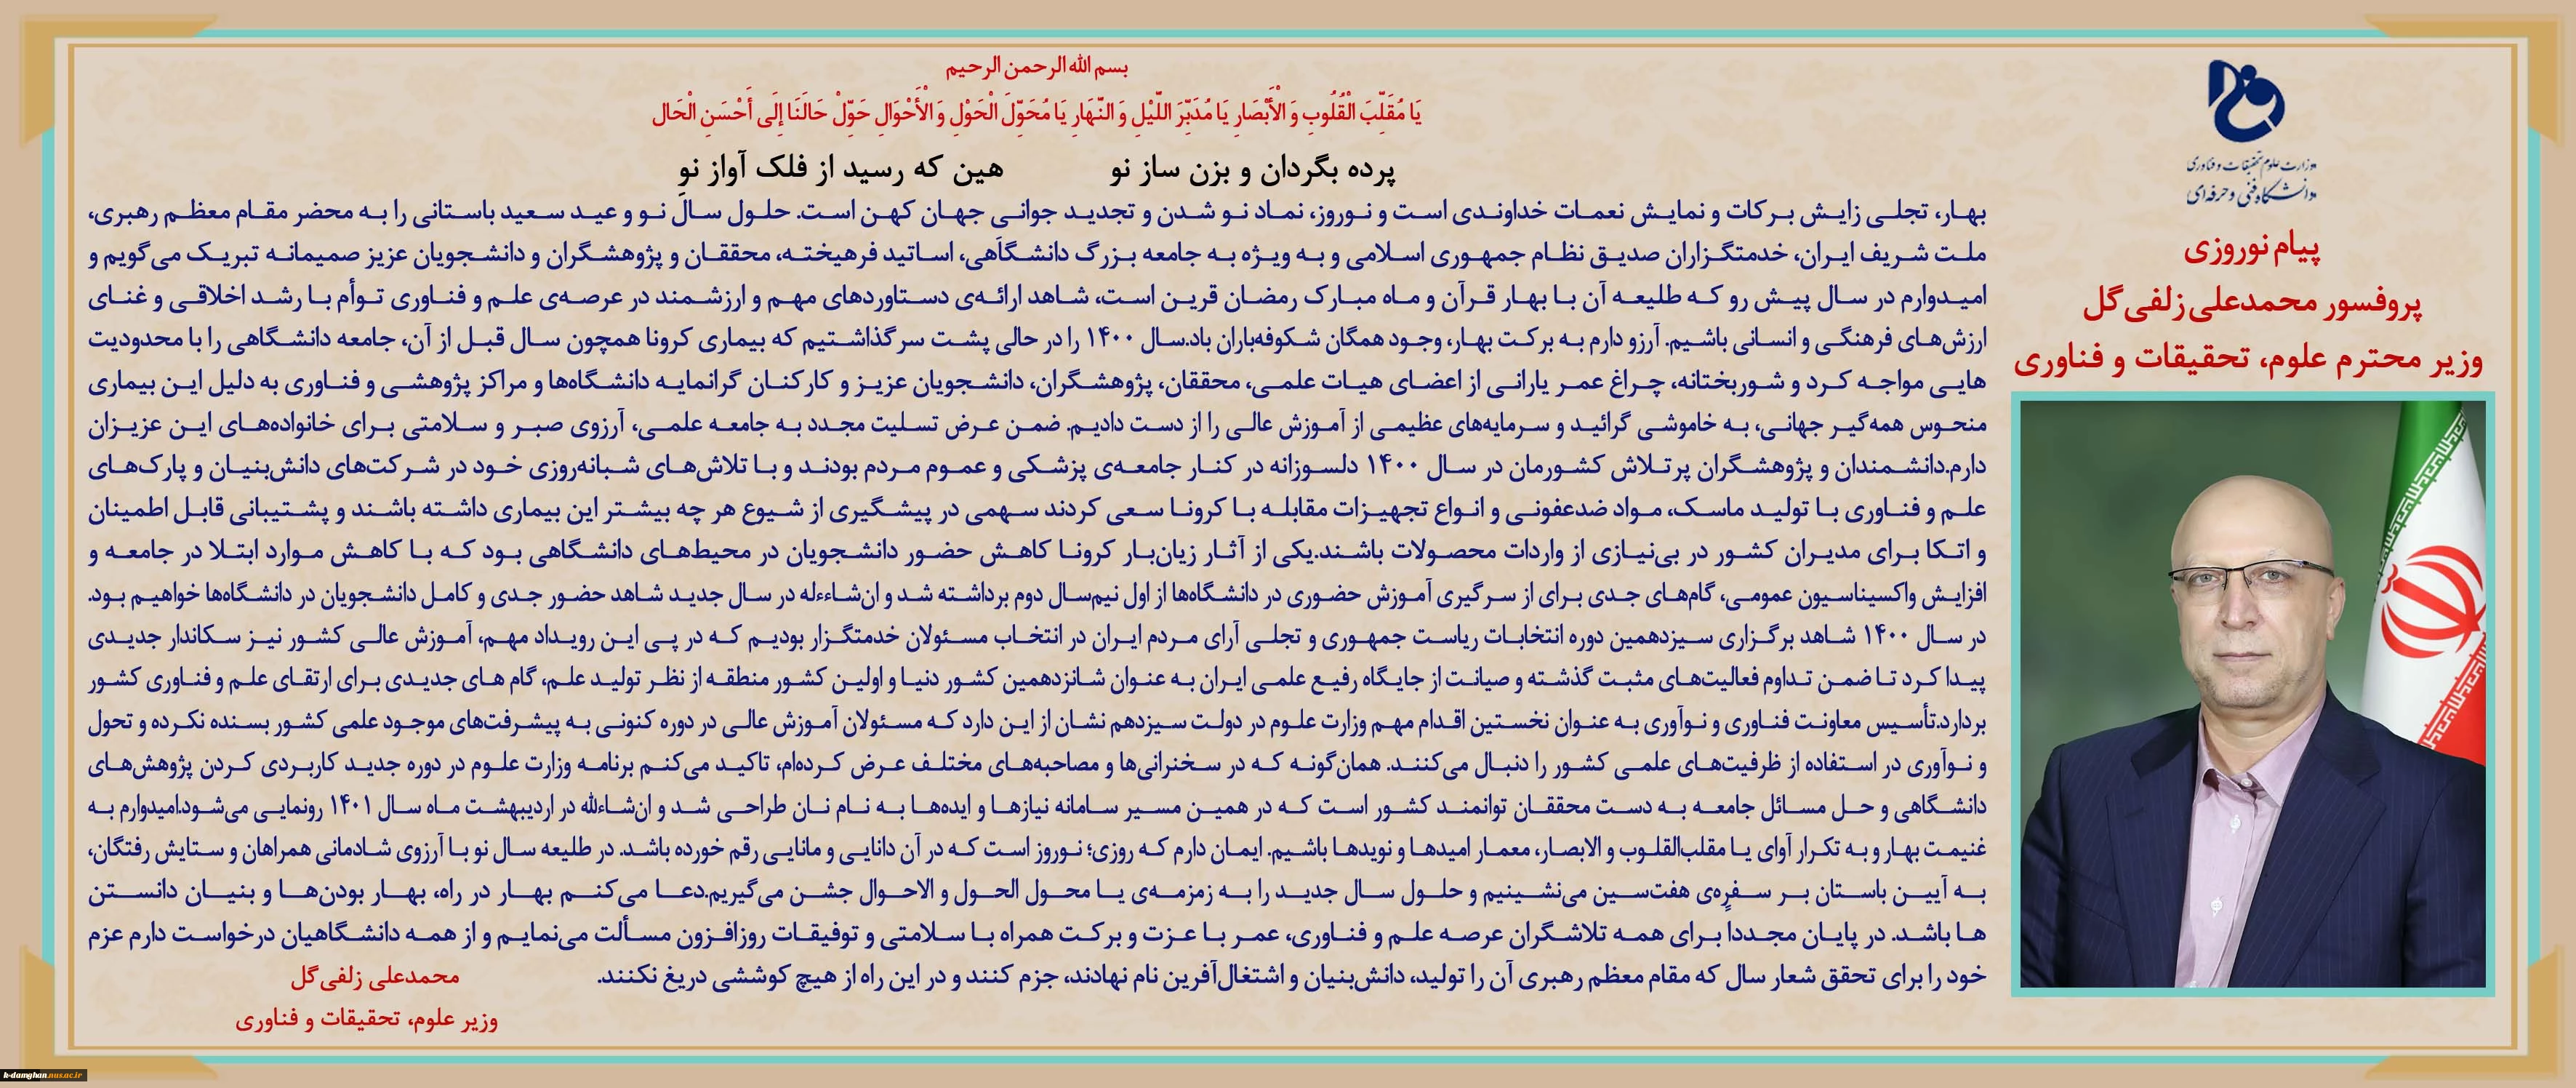 وزارت علوم تحقیقات و فناوری
دانشگاه فنی و حرفه‌ای
پیام نوروزی
پروفسور محمدعلی زلفی‌گل
وزیر محترم علوم، تحقیقات و فناوری
بسم الله الرحمن الرحیم
يَا مُقَلِّبَ الْقُلُوبِ وَ الْأَبْصَارِ يَا مُدَبِّرَ اللَّيْلِ وَ النَّهَارِ يَا مُحَوِّلَ الْحَوْلِ وَ الْأَحْوَالِ حَوِّلْ حَالَنَا إِلَى أَحْسَنِ الْحَال
پرده بگردان و بزن ساز نو هین که رسید از فلک آواز نو
بهار، تجلی زایش برکات و نمایش نعمات خداوندی است و نوروز، نماد نو شدن و تجدید جوانی جهان کهن است. حلول سال نو و عید سعید باستانی را به محضر مقام معظم رهبری،
ملت شریف ایران، خدمتگزاران صدیق نظام جمهوری اسلامی و به ویژه به جامعه بزرگ دانشگاهی، اساتید فرهیخته، محققان و پژوهشگران و دانشجویان عزیز صمیمانه تبریک می‌گویم و
امیدوارم در سال پیش رو که طلیعه آن با بهار قرآن و ماه مبارک رمضان قرین است، شاهد ارائه‌ی دستاوردهای مهم و ارزشمند در عرصه‌ی علم و فناوری توأم با رشد اخلاقی و غنای
ارزش‌های فرهنگی و انسانی باشیم. آرزو دارم به برکت بهار، وجود همگان شکوفه‌باران باد.سال ۱۴۰۰ را در حالی پشت سر گذاشتیم که بیماری کرونا همچون سال قبل از آن، جامعه دانشگاهی را با محدودیت
هایی مواجه کرد و شوربختانه، چراغ عمر یارانی از اعضای هیات علمی، محققان، پژوهشگران، دانشجویان عزیز و کارکنان گرانمایه دانشگاه‌ها و مراکز پژوهشی و فناوری به دلیل این بیماری
منحوس همه‌گیر جهانی، به خاموشی گرائید و سرمایه‌های عظیمی از آموزش عالی را از دست دادیم. ضمن عرض تسلیت مجدد به جامعه علمی، آرزوی صبر و سلامتی برای خانواده‌های این عزیزان
دارم.دانشمندان و پژوهشگران پرتلاش کشورمان در سال ۱۴۰۰ دلسوزانه در کنار جامعه‌ی پزشکی و عموم مردم بودند و با تلاش‌های شبانه‌روزی خود در شرکت‌های دانش‌بنیان و پارک‌های
علم و فناوری با تولید ماسک، مواد ضدعفونی و انواع تجهیزات مقابله با کرونا سعی کردند سهمی در پیشگیری از شیوع هر چه بیشتر این بیماری داشته باشند و پشتیبانی قابل اطمینان
و اتکا برای مدیران کشور در بی‌نیازی از واردات محصولات باشند.یکی از آثار زیان‌بار کرونا کاهش حضور دانشجویان در محیط‌های دانشگاهی بود که با کاهش موارد ابتلا در جامعه و
افزایش واکسیناسیون عمومی، گام‌های جدی برای از سرگیری آموزش حضوری در دانشگاه‌ها از اول نیم‌سال دوم برداشته شد و ان‌شاءءله در سال جدید شاهد حضور جدی و کامل دانشجویان در دانشگاه‌ها خواهیم بود.
در سال ۱۴۰۰ شاهد برگزاری سیزدهمین دوره انتخابات ریاست جمهوری و تجلی آرای مردم ایران در انتخاب مسئولان خدمتگزار بودیم که در پی این رویداد مهم، آموزش عالی کشور نیز سکاندار جدیدی
پیدا کرد تا ضمن تداوم فعالیت‌های مثبت گذشته و صیانت از جایگاه رفیع علمی ایران به عنوان شانزدهمین کشور دنیا و اولین کشور منطقه از نظر تولید علم، گام های جدیدی برای ارتقای علم و فناوری کشور
بردارد.تأسیس معاونت فناوری و نوآوری به عنوان نخستین اقدام مهم وزارت علوم در دولت سیزدهم نشان از این دارد که مسئولان آموزش عالی در دوره کنونی به پیشرفت‌های موجود علمی کشور بسنده نکرده و تحول
و نوآوری در استفاده از ظرفیت‌های علمی کشور را دنبال می‌کنند. همان‌گونه که در سخنرانی‌ها و مصاحبه‌های مختلف عرض کرده‌ام، تاکید می‌کنم برنامه وزارت علوم در دوره جدید کاربردی کردن پژوهش‌های
دانشگاهی و حل مسائل جامعه به دست محققان توانمند کشور است که در همین مسیر سامانه نیازها و ایده‌ها به نام نان طراحی شد و ان‌شاءلله در اردیبهشت ماه سال ۱۴۰۱ رونمایی می‌شود.امیدوارم به
غنیمت بهار و به تکرار آوای یا مقلب‌القلوب و الابصار، معمار امیدها و نویدها باشیم. ایمان دارم که روزی؛ نوروز است که در آن دانایی و مانایی رقم خورده باشد. در طلیعه سال نو با آرزوی شادمانی همراهان و ستایش رفتگان،
به آیین باستان بر سفره‌ی هفت‌سین می‌نشینیم و حلول سال جدید را به زمزمه‌ی یا محول الحول و الاحوال جشن می‌گیریم.دعا می‌کنم بهار در راه، بهار بودن‌ها و بنیان دانستن
ها باشد. در پایان مجددا برای همه تلاشگران عرصه علم و فناوری، عمر با عزت و برکت همراه با سلامتی و توفیقات روزافزون مسألت می‌نمایم و از همه دانشگاهیان درخواست دارم عزم
خود را برای تحقق شعار سال که مقام معظم رهبری آن را تولید، دانش‌بنیان و اشتغال‌آفرین نام نهادند، جزم کنند و در این راه از هیچ کوششی دریغ نکنند.
محمدعلی زلفی‌گل
وزیر علوم، تحقیقات و فناوری
k-damghan.nus.ac.ir